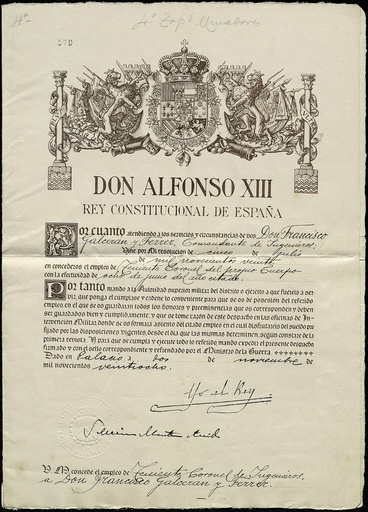 4º Zapºs Minadores
DON ALFONSO XIII
REY CONSTITUCIONAL DE ESPAÑA
Por cuanto atendiendo a los servicios y circunstancias de vos Don Francisco
Galceran y Ferrer, Comandante de Ingenieros.
Vine por Mi resolución de cinco de julio
de mil novecientos veinte
en concederos el empleo de Teniente Coronel del propio Cuerpo
con la efectividad de ocho de junio del año citado
Por tanto mando a la Autoridad superior militar del distrito o ejército a que fuereis a ser-
vir, que ponga el cumplase y ordene lo conveniente para que se os posesión del referido
empleo en el que se os guardarán todos los honores y preeminencias que os corresponden y deben
ser guardados bien y cumplidamente, y que se tome razón de este despacho en las oficinas de In-
tervención Militar, donde se os formará asiento del citado empleo en el cual disfrutareis del sueldo pre-
fijado por las disposiciones vigentes, desde el día que las mismas determinen, según constare de la
primera revista. Y para que se cumpla y ejecute todo lo referido mando expedir el presente despacho
firmado y con el sello correspondiente y refrendado por el Ministro de la Guerra.
Dado en Palacio a dos de noviembre de
mil novecientos veintiocho.
Yo el Rey
V. M. concede el empleo de Teniente Coronel de Ingenieros,
a Don Francisco Galceran y Ferrer.